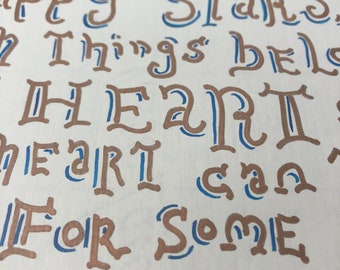 Stars,
Things belo
HEART
HEART can
For Some